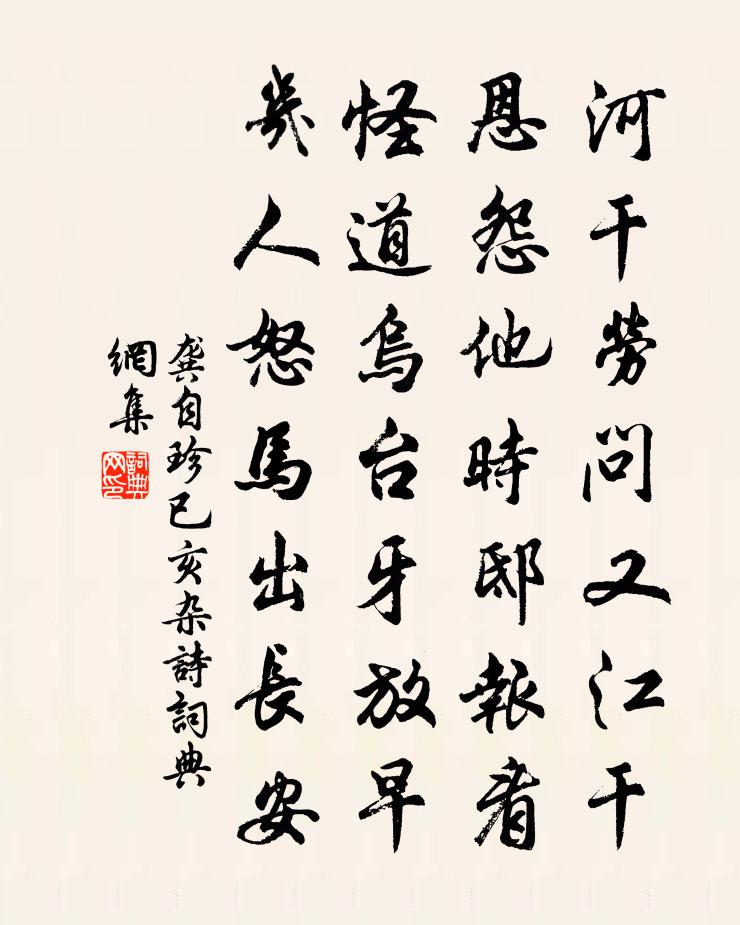 河干勞問又江干
恩怨他時邸報看
怪道烏台牙放早
幾人怒馬出長安
龔自珍已亥杂詩詞典
網集
詞典
网印